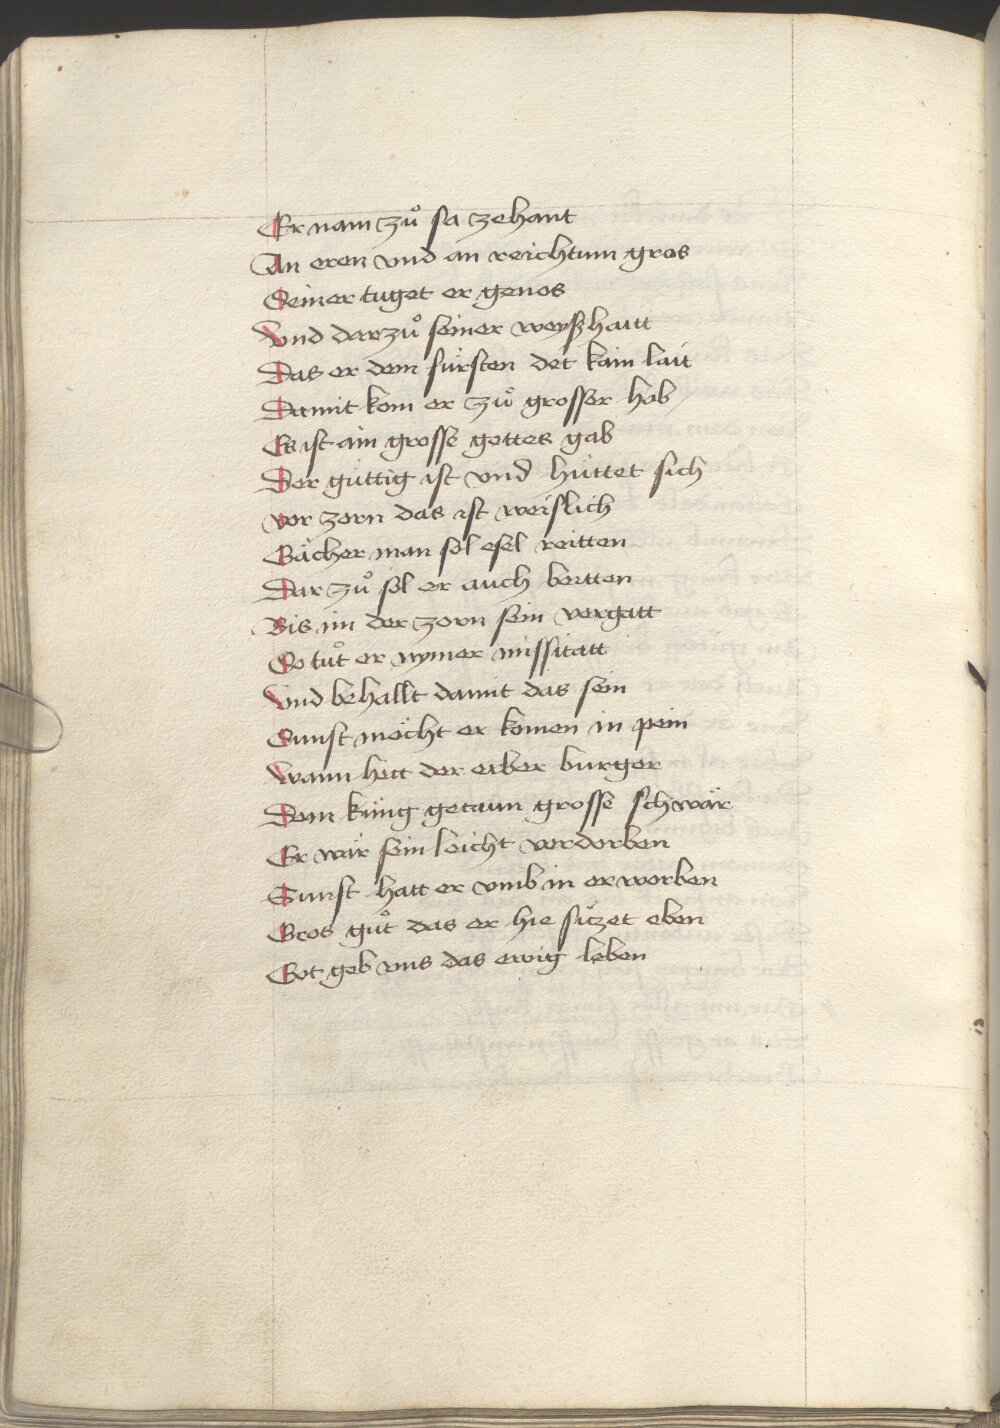 Er nam zuͦ sa zehant
An eren vnd an reichtum gros
Seiner tuget er genos
Vnd darzuͦ seiner weyßhaitt
Das er dem fürsten det kain lait
Damit kom er zuͦ grosser hab
Es ist ain grosse gottes gab
Der güttig ist vnd hüttet sich
vor zorn das ist weislich
Gächer man sol esel reitten
Dar zuͦ sol er auch beitten
Bis im der zorn sein vergatt
So tuͦt er nymer missitatt
Vnd behallt damit das sein
Sunst möcht er komen in pein
Wann hett der erber burger
Dem küng getaun grosse schwär
Er wär sein leicht verdorben
Sunst hatt er vmb in erworben
Gros guͦt das er hie sitzet eben
Got geb vns das ewig leben